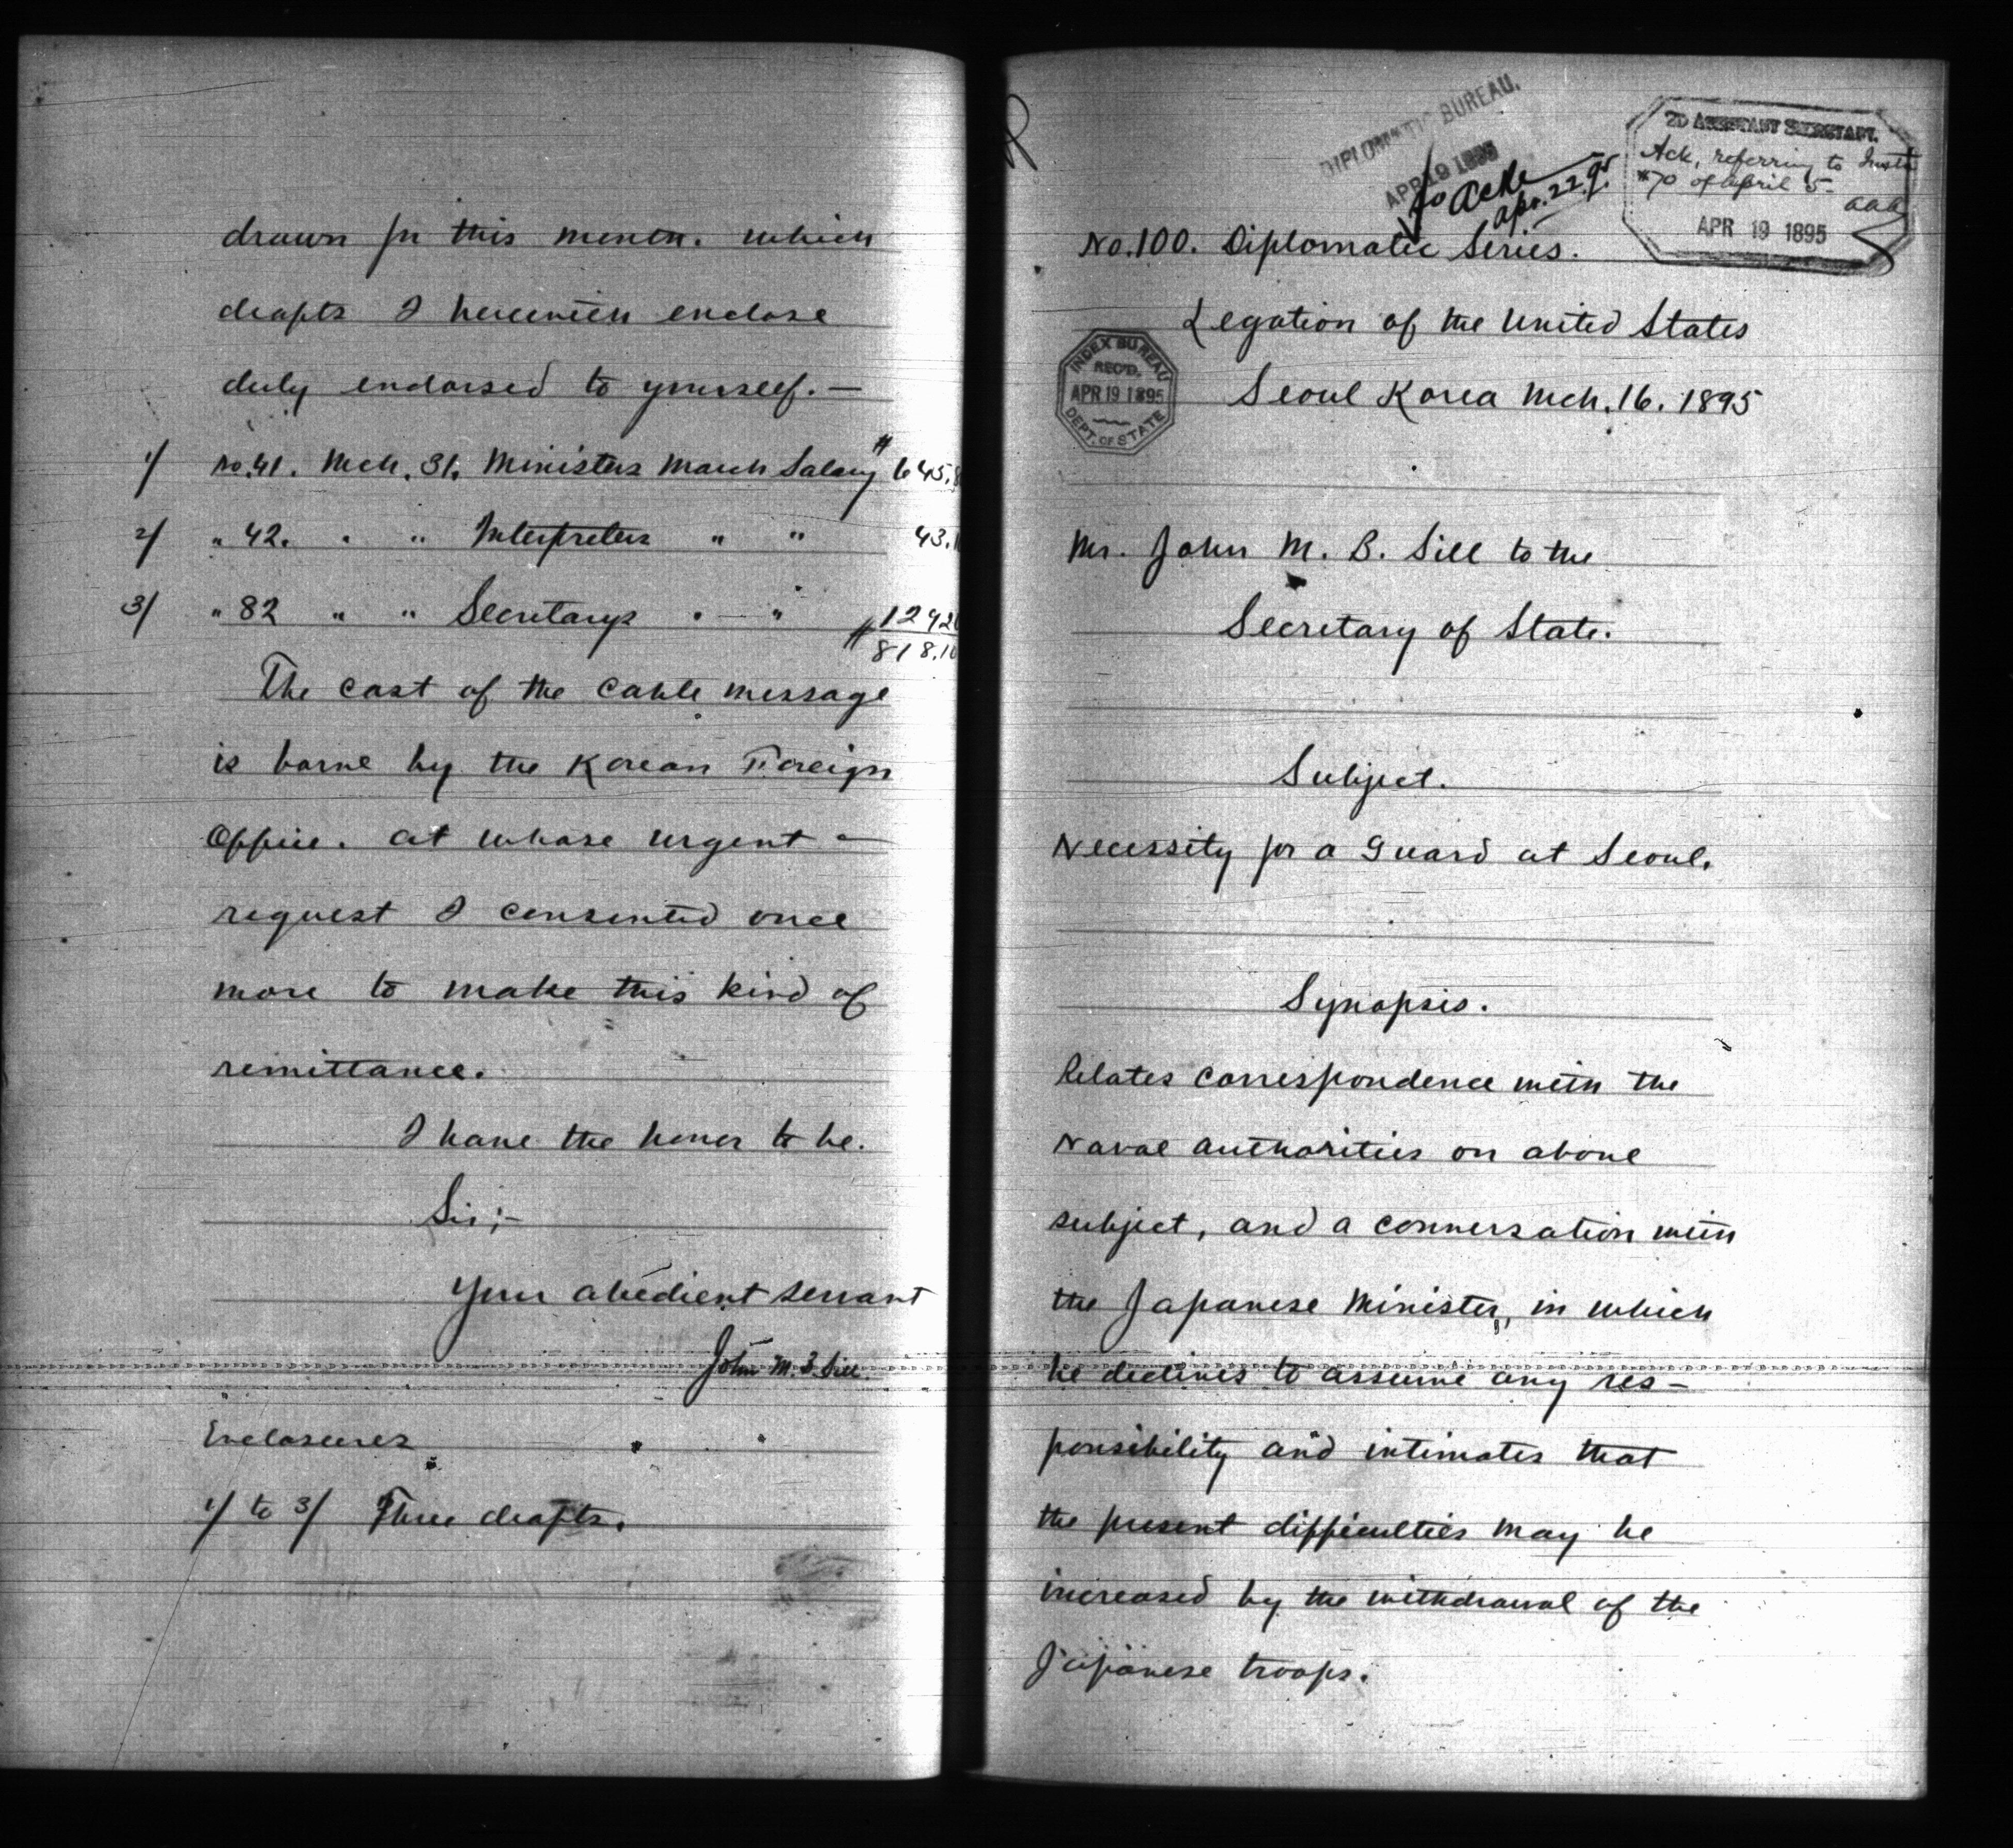 drawn for this month. which
drafts I herewith enclose
duly endorsed to yourself.—
1/ No.41. Mch. 31. Ministers March Salary $ 645.
2/ " 42. " " Interpreters " " 43.
3/ " 82 " " Secretarys " — " 129.
$ 818.10
The cost of the cable message
is borne by the Korean Foreign
Office. at whose urgent —
request I consented once
more to make this kind of
remittance.
I have the honor to be.
Sir;-
Your obedient servant
John M. B. Sill.
Enclosures
1/ to 3/ Three drafts.
DIPLOMATIC BUREAU.
APR 19 1895
So Ackd
Apr. 22. 95.
2D ASSISTANT SECRETARY.
Ack, referring to Inst
#70 of April 5-
aaa
APR 19 1895
No.100. Diplomatic Series.
Legation of the United States
Seoul Korea Mch. 16. 1895
INDEX BUREAU
REC'D.
APR 19 1895
DEPT. OF STATE
Mr. John M. B. Sill to the
Secretary of State.
Subject.
Necessity for a Guard at Seoul.
Synopsis.
Relates correspondence with the
Naval authorities on above
subject, and a conversation with
the Japanese Minister, in which
he declines to assume any res-
ponsibility and intimates that
the present difficulties may be
increased by the withdrawal of the
Japanese troops.